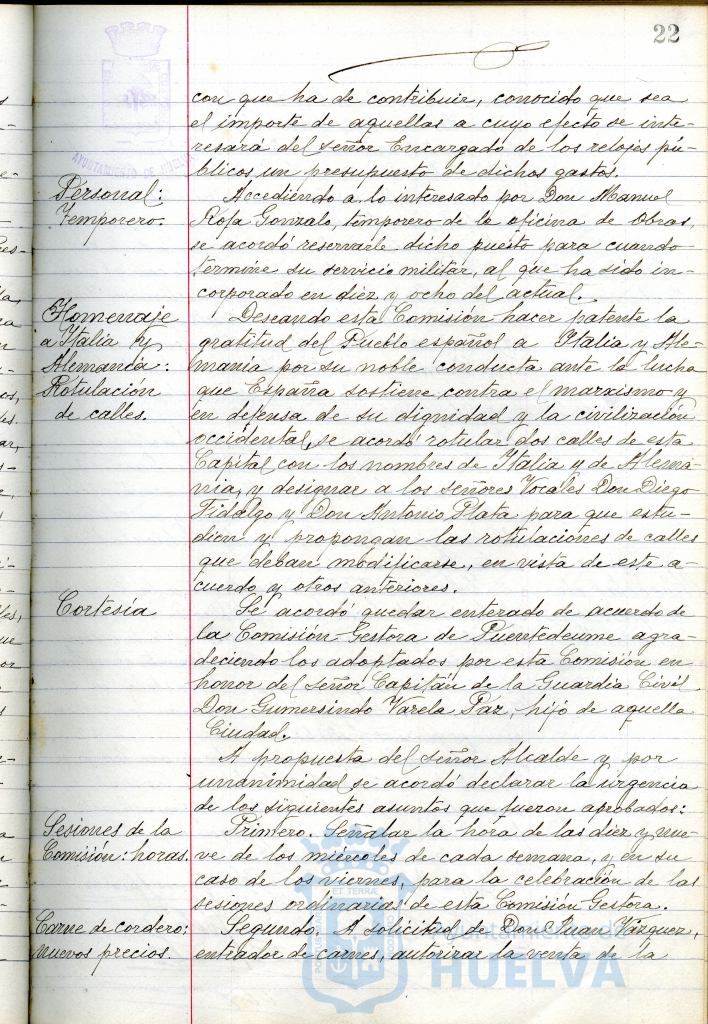 22
AYUNTAMIENTO DE HUELVA
con que ha de contribuir, conocido que sea
el importe de aquellas a cuyo efecto se inte-
resará del señor Encargado de los relojes pú-
blicos un presupuesto de dichos gastos.
Personal:
Temporero.
Accediendo a lo interesado por Don Manuel
Rofa Gonzalo, temporero de la oficina de Obras,
se acordó reservarle dicho puesto para cuando
termine su servicio militar, al que ha sido in-
corporado en diez y ocho del actual.
Homenaje
a Italia y
Alemania:
Rotulación
de calles.
Deseando esta Comisión hacer patente la
gratitud del Pueblo español a Italia y Ale-
mania por su noble conducta ante la lucha
que España sostiene contra el marxismo y
en defensa de su dignidad y la civilización
occidental, se acordó rotular dos calles de esta
Capital con los nombres de Italia y de Alema-
nia, y designar a los señores Vocales Don Diego
Fidalgo y Don Antonio Plata para que estu-
dien y propongan las rotulaciones de calles
que deban modificarse, en vista de este a-
cuerdo y otros anteriores.
Cortesía
Se acordó quedar enterado de acuerdo de
la Comisión Gestora de Puentedeume agra-
deciendo los adoptados por esta Comisión en
honor del señor Capitán de la Guardia Civil
Don Gumersindo Varela Paz, hijo de aquella
Ciudad.
A propuesta del señor Alcalde y por
unanimidad se acordó declarar la urgencia
de los siguientes asuntos que fueron aprobados:
Sesiones de la
Comisión: horas.
Primero. Señalar la hora de las diez y nue-
ve de los miércoles de cada semana, y en su
caso de los viernes, para la celebración de las
sesiones ordinarias de esta Comisión Gestora.
Carne de cordero:
nuevos precios.
Segundo. A solicitud de Don Juan Vázquez,
entrador de carnes, autorizar la venta de la
Ayuntamiento de
HUELVA